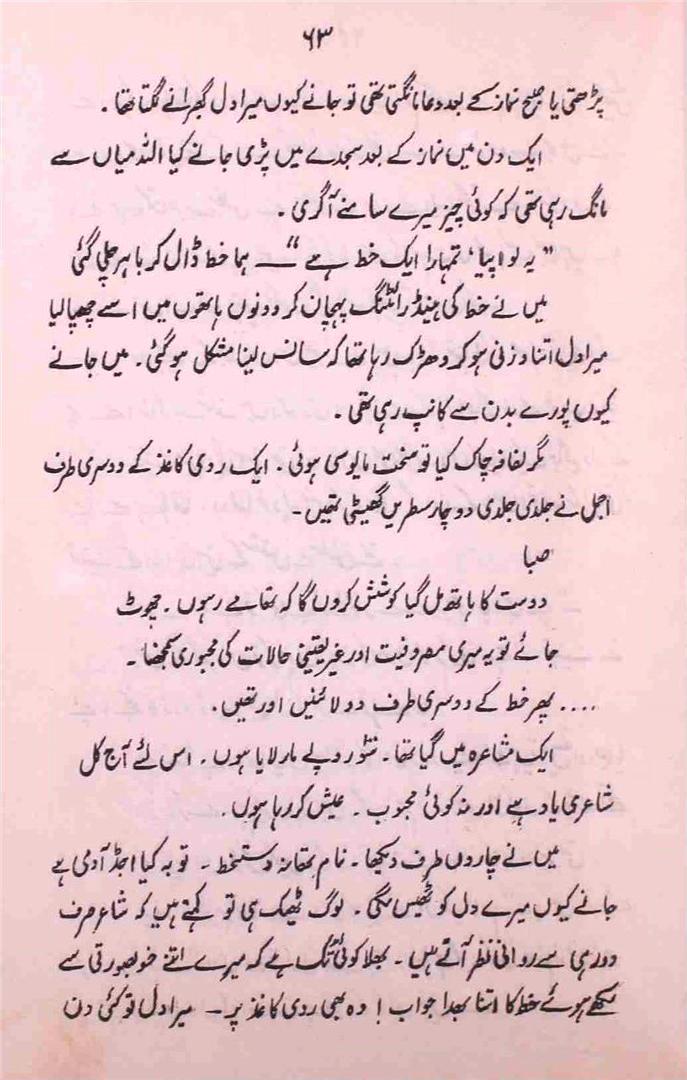 ۶۳
پڑھتی یا صبح نماز کے بعد دعا مانگتی تھی تو جانے کیوں میرا دل گھبرانے لگتا تھا۔
ایک دن میں نماز کے بعد سجدے میں پڑی جانے کیا اللہ میاں سے
مانگ رہی تھی کہ کوئی چیز میرے سامنے آ گری۔
”یہ لو اپیا، تمہارا ایک خط ہے“ — ہما خط ڈال کر باہر چلی گئی
میں نے خط کی ہینڈ رائٹنگ پہچان کر دونوں ہاتھوں میں اسے چھپا لیا
میرا دل اتنا وزنی ہو کر دھڑک رہا تھا کہ سانس لینا مشکل ہو گئی۔ میں جانے
کیوں پورے بدن سے کانپ رہی تھی۔
مگر لفافہ چاک کیا تو سخت مایوسی ہوئی۔ ایک ردی کاغذ کے دوسری طرف
اجمل نے جلدی جلدی دو چار سطریں گھسیٹی تھیں۔
صبا
دوست کا ہاتھ مل گیا کوشش کروں گا کہ تھامے رہوں۔ چھوٹ
جائے تو یہ میری مصروفیت اور غیر یقینی حالات کی مجبوری سمجھنا۔
.... پھر خط کے دوسری طرف دو لائنیں اور تھیں۔
ایک مشاعرہ میں گیا تھا۔ سٹو روپے مار لایا ہوں۔ اس لئے آج کل
شاعری یاد ہے اور نہ کوئی محبوب۔ عیش کر رہا ہوں۔
میں نے چاروں طرف دیکھا۔ نام تھا نہ دستخط۔ توبہ کیا اجڈ آدمی ہے
جانے کیوں میرے دل کو ٹھیس لگی۔ لوگ ٹھیک ہی تو کہتے ہیں کہ شاعر صرف
دور ہی سے رومانی نظر آتے ہیں۔ بھلا کوئی تُک ہے کہ میرے اتنے خوبصورتی سے
لکھے ہوئے خط کا اتنا بھدا جواب! وہ بھی ردی کاغذ پر — میرا دل تو کئی دن